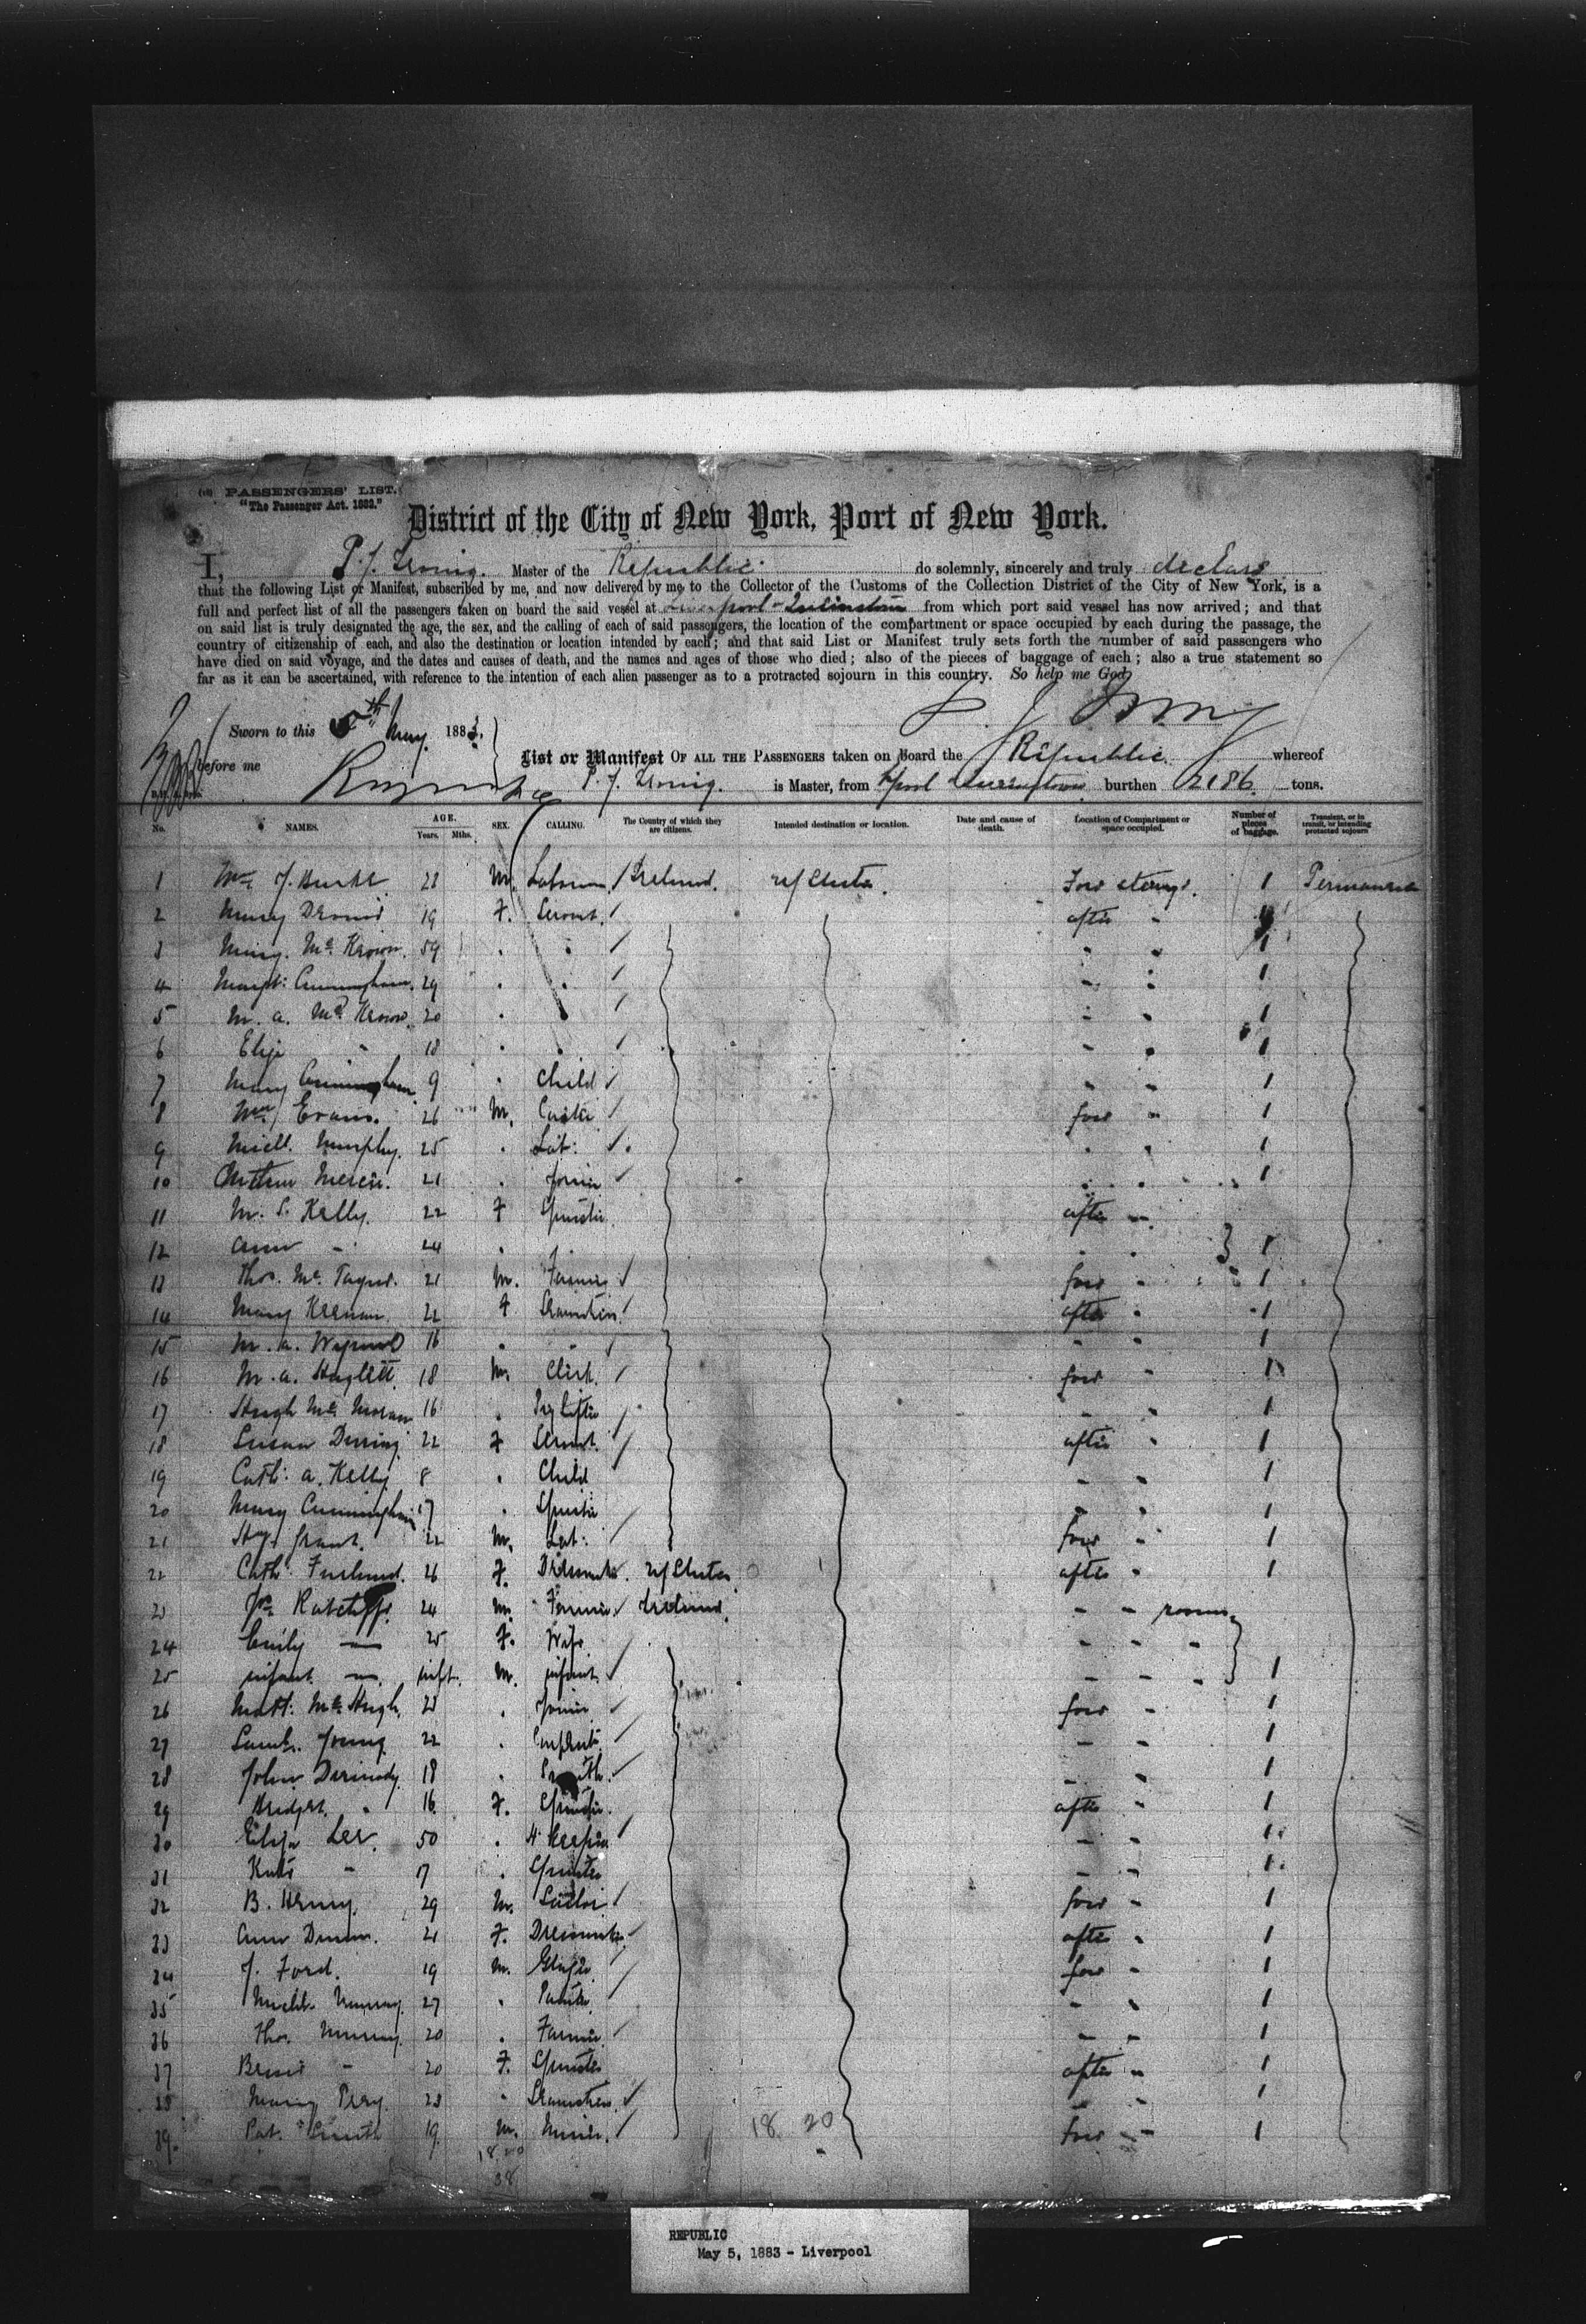 PASSENGERS' LIST.
"The Passenger Act. 1882."
District of the City of New York, Port of New York.
I, P. J. Irving. Master of the Republic do solemnly, sincerely and truly declare
that the following List or Manifest, subscribed by me, and now delivered by me to the Collector of the Customs of the Collection District of the City of New York, is a
full and perfect list of all the passengers taken on board the said vessel at Liverpool & Queenstown from which port said vessel has now arrived; and that
on said list is truly designated the age, the sex, and the calling of each of said passengers, the location of the compartment or space occupied by each during the passage, the
country of citizenship of each, and also the destination or location intended by each; and that said List or Manifest truly sets forth the number of said passengers who
have died on said voyage, and the dates and causes of death, and the names and ages of those who died; also of the pieces of baggage of each; also a true statement so
far as it can be ascertained, with reference to the intention of each alien passenger as to a protracted sojourn in this country. So help me God
P. J. Irving
Sworn to this 5th May. 1883.
before me
List or Manifest OF ALL THE PASSENGERS taken on board the Republic whereof
P. J. Irving. is Master, from Lpool & Queenstown burthen 2186 tons.
No. NAMES. AGE. Years. Mths. SEX. CALLING. The Country of which they are citizens. Intended destination or location. Date and cause of death. Location of Compartment or space occupied. Number of pieces of baggage. Transient, or in transit, or intending protracted sojourn
1 Wm J. Burke 28 M. Labourer Ireland. U/States. Ford steerage. 1 Permanent
2 Mary 19 F. Servant. after "
3 Mary Mc Keown. 59 " " " " 1
4 Margt: Cunningham. 29 " " " " 1
5 M. A. Mc Keown 20 " " " " 1
6 Eliza " 18 " " " " 1
7 Mary Cunningham 9 " Child " " 1
8 Wm Evans. 26 M. ford " 1
9 Michl. Murphy. 25 " Lab: " " 1
10 21 " Joiner " " 1
11 M. S. Kelly. 22 F Spinster after "
12 Ann " 24 " " " 1
13 Thos. Mc 21 M. Farmer ford " 1
14 Mary Keenan 22 F Seamstress after " 1
15 M. A. 16 " " " " 1
16 M. A. Hazlett 18 M Clerk. ford " 1
17 Hugh Mc 16 " " " 1
18 Susan 22 F Servt. after " 1
19 Cath: A. Kelly 8 " Child " " 1
20 Mary Cunningham 17 " Spinster " " 1
21 Hy. Grant. 22 M. Lab: ford " 1
22 Cath: 26 F. Dressmaker. U/States after " 1
23 Jos Ratcliffe. 24 M. Farmer. Ireland. " " rooms
24 Emily — 25 F. Wife " " "
25 infant — inft. M. infant " " " 1
26 Matt: Mc Hugh. 23 " Joiner ford " 1
27 Saml. Young. 22 " " " 1
28 John Dermody. 18 " Smith. " " 1
29 Bridget " 16 F. Spinster. after " 1
30 Eliza Lee. 50 " H. Keeper " " 1
31 Kate " 17 " Spinster " " 1
32 B. Henry. 29 M. Sailor ford " 1
33 Ann 21 F. Dressmaker after " 1
34 J. Ford. 19 M. Glazier ford " 1
35 Michl. Murray. 27 " " " 1
36 Thos. Murray. 20 " Farmer " " 1
37 " 20 F. Spinster after " 1
38 Mary 23 " Seamstress. " " 1
39. Pat. Smith 19 M. Miner. 18 20 ford " 1
18 20
38
REPUBLIC
May 5, 1883 - Liverpool